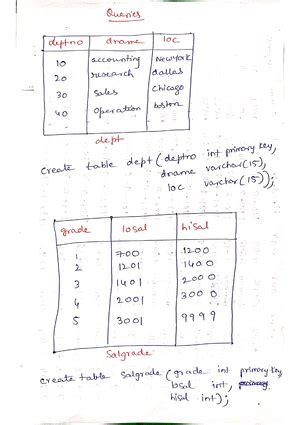 Queries
deptno dname loc
10 accounting Newyork
20 research dallas
30 Sales Chicago
40 Operation boston
dept
create table dept (deptno int primary key,
dname varchar(15),
loc varchar(15));
grade losal hisal
1 700 1200
2 1201 1400
3 1401 2000
4 2001 3000
5 3001 9999
Salgrade
create table Salgrade (grade int primary key,
losal int,
hisal int);